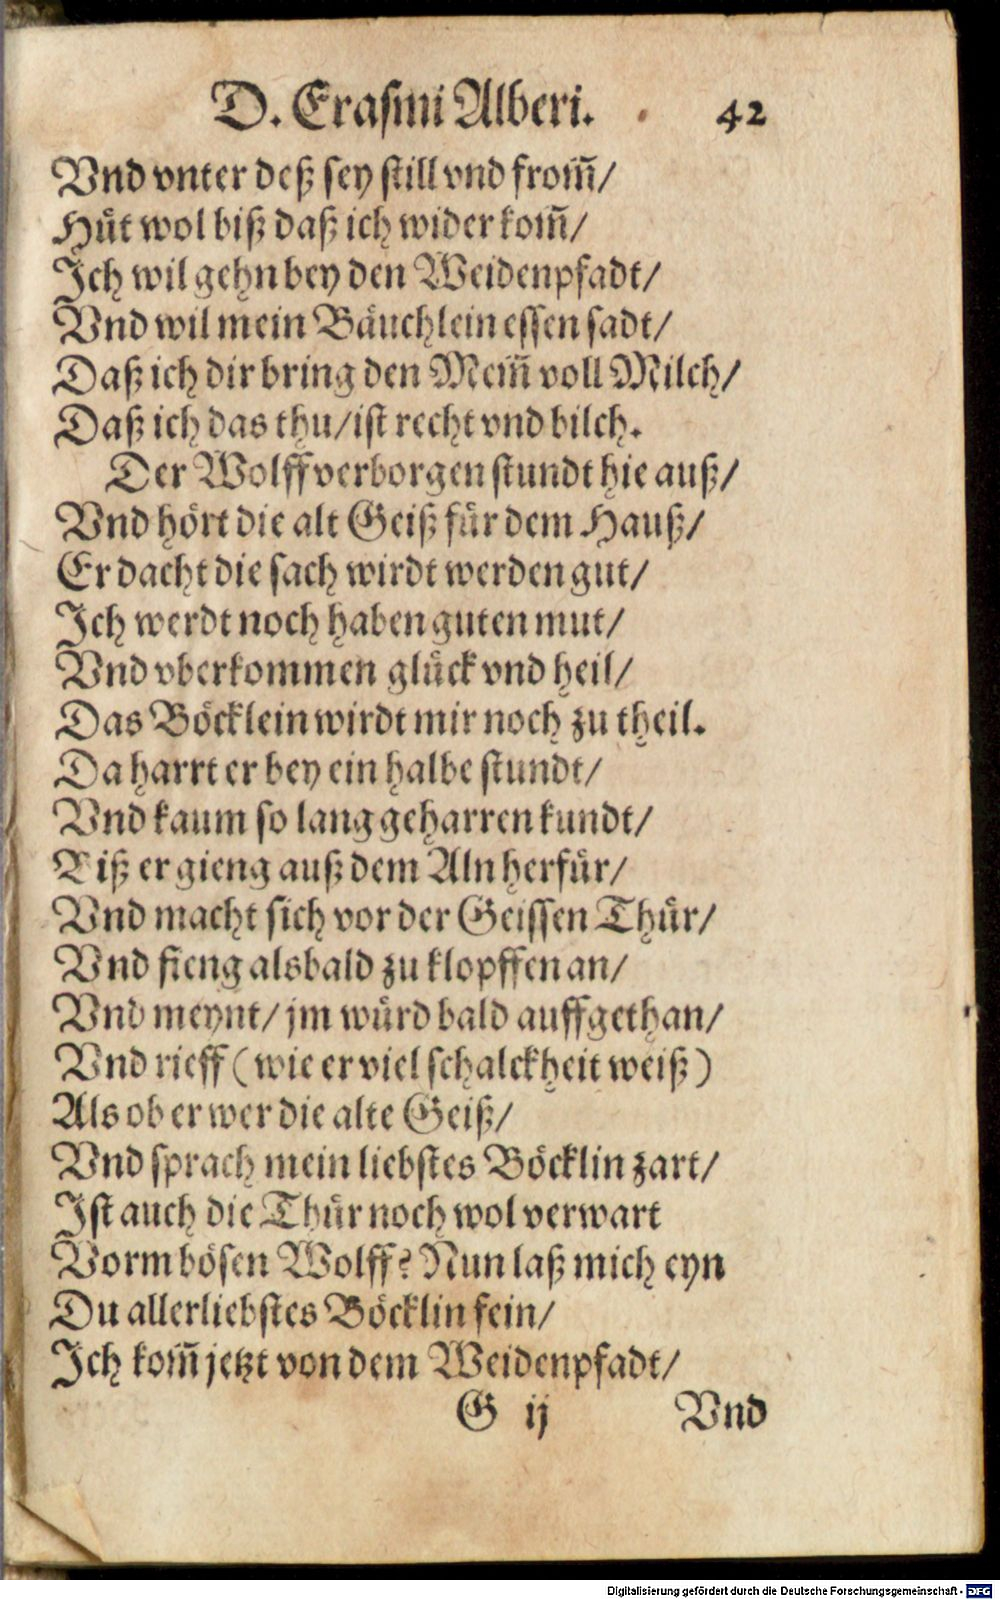 D. Erasmi Alberi. 42
Vnd vnter deß sey still vnd from̃/
Huͤt wol biß daß ich wider kom̃/
Ich wil gehn bey den Weidenpfadt/
Vnd wil mein Baͤuchlein essen sadt/
Daß ich dir bring den Mem̃ voll Milch/
Daß ich das thu/ist recht vnd bilch.
Der Wolff verborgen stundt hie auß/
Vnd hoͤrt die alt Geiß fuͤr dem Hauß/
Er dacht die sach wirdt werden gut/
Ich werdt noch haben guten mut/
Vnd vberkommen gluͤck vnd heil/
Das Boͤcklein wirdt mir noch zu theil.
Da harrt er bey ein halbe stundt/
Vnd kaum so lang geharren kundt/
Biß er gieng auß dem Aln herfuͤr/
Vnd macht sich vor der Geissen Thuͤr/
Vnd fieng alsbald zu klopffen an/
Vnd meynt/ jm wuͤrd bald auffgethan/
Vnd rieff (wie er viel schalckheit weiß)
Als ob er wer die alte Geiß/
Vnd sprach mein liebstes Boͤcklin zart/
Ist auch die Thuͤr noch wol verwart
Vorm boͤsen Wolff? Nun laß mich eyn
Du allerliebstes Boͤcklin fein/
Ich kom̃ jetzt von dem Weidenpfadt/
G ij Vnd
Digitalisierung gefördert durch die Deutsche Forschungsgemeinschaft - DFG